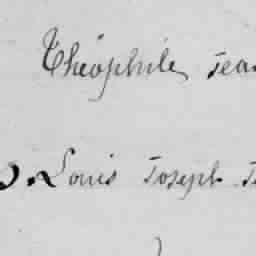 Théophile Jean
Louis Joseph